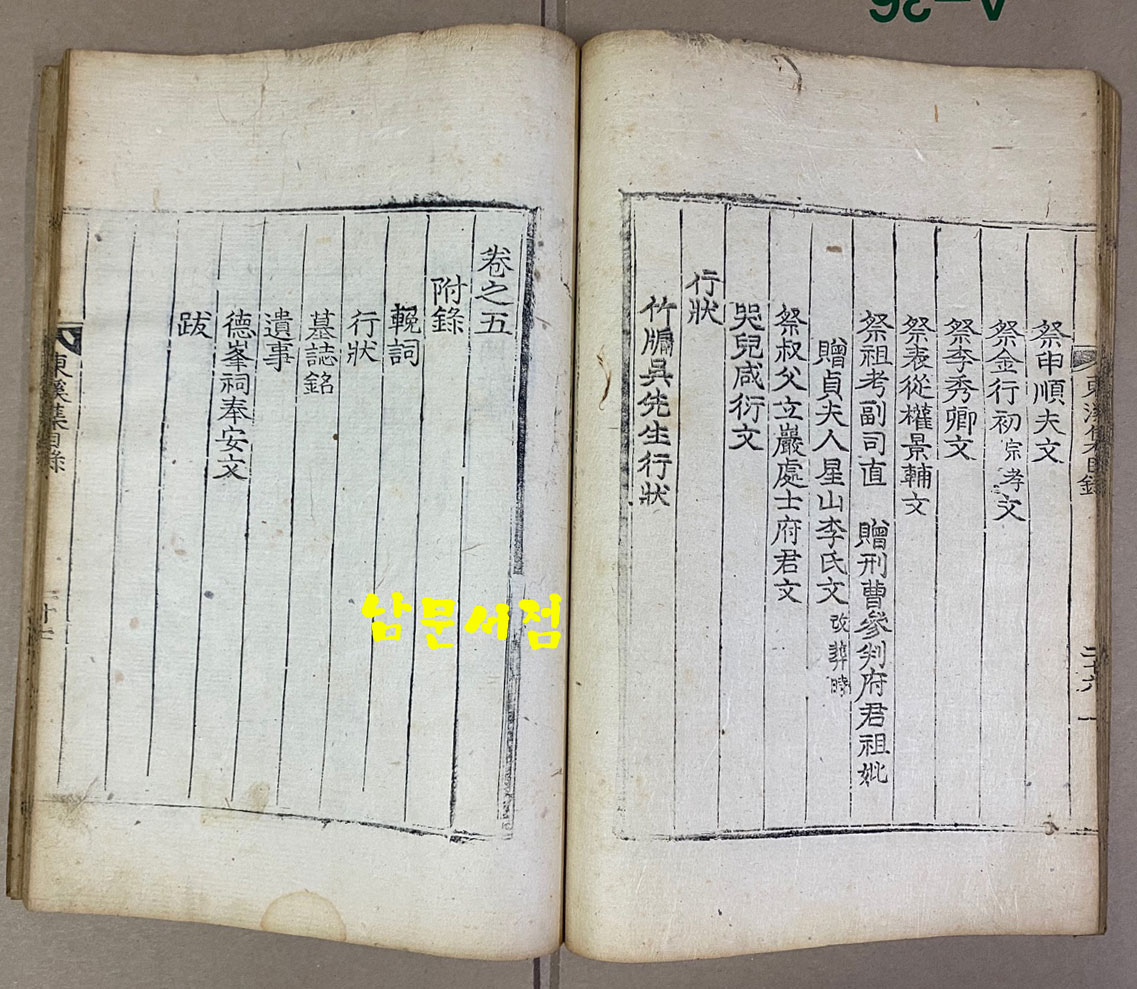 祭申順夫文
祭金行初 宗孝 文
祭李秀卿文
祭表從權景輔文
祭祖考副司直 贈刑曹參判府君祖妣
贈貞夫人星山李氏文 改葬時
祭叔父立巖處士府君文
哭兒咸衍文
行狀
竹牖吳先生行狀
東溪集目錄
卷之五
附錄
輓詞
行狀
墓誌銘
遺事
德峯祠奉安文
跋
東溪集目錄
十一
남문서점
A-36